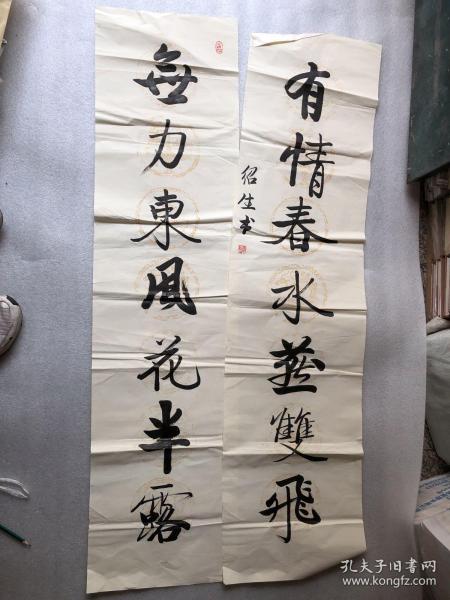 無力東風花半露
有情春水燕雙飛
绍生书
孔夫子旧书网
www.kongfz.com